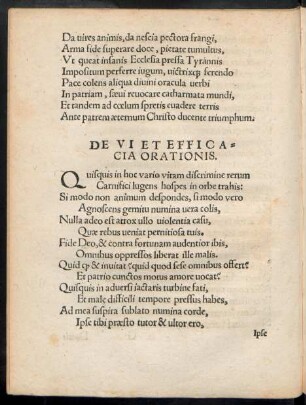 Da uires animis, da nescia pectora frangi,
Arma fide superare doce, pietate tumultus,
Vt queat insanis Ecclesia pressa Tyrannis
Impositum perferre iugum, uictrixq; ferendo
Pace colens aliqua diuini oracula uerbi
In patriam, sæui reuocare catharmata mundi,
Et tandem ad cœlum spretis euadere terris
Ante patrem æternum Christo ducente triumphum.
DE VI ET EFFICA-
CIA ORATIONIS.
Quisquis in hoc uario uitam discrimine rerum
Carnifici lugens hospes in orbe trahis:
Si modo non animum despondes, si modo uero
Agnoscens gemitu numina uera colis,
Nulla adeo est atrox ullo uiolentia casu,
Quæ rebus ueniat pernitiosa tuis.
Fide Deo, & contra fortunam audentior ibis,
Omnibus oppressos liberat ille malis.
Quid q; & inuitat? quid quod sese omnibus offert?
Et patrio cunctos motus amore uocat?
Quisquis in aduersi iactaris turbine fati,
Et male difficili tempore pressus habes,
Ad mea suspira sublato numina corde,
Ipse tibi præsto tutor & ultor ero,
Ipse